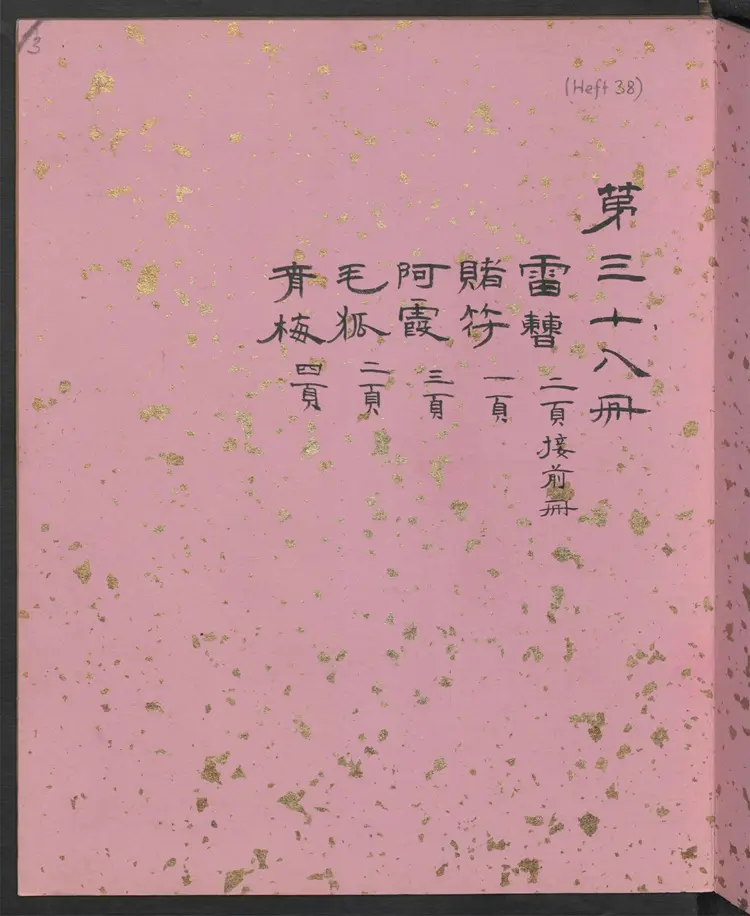 3
(Heft 38)
第三十八冊
雷𣋝 二頁接前冊
賭符 一頁
阿霞 三頁
毛狐 二頁
青梅 四頁